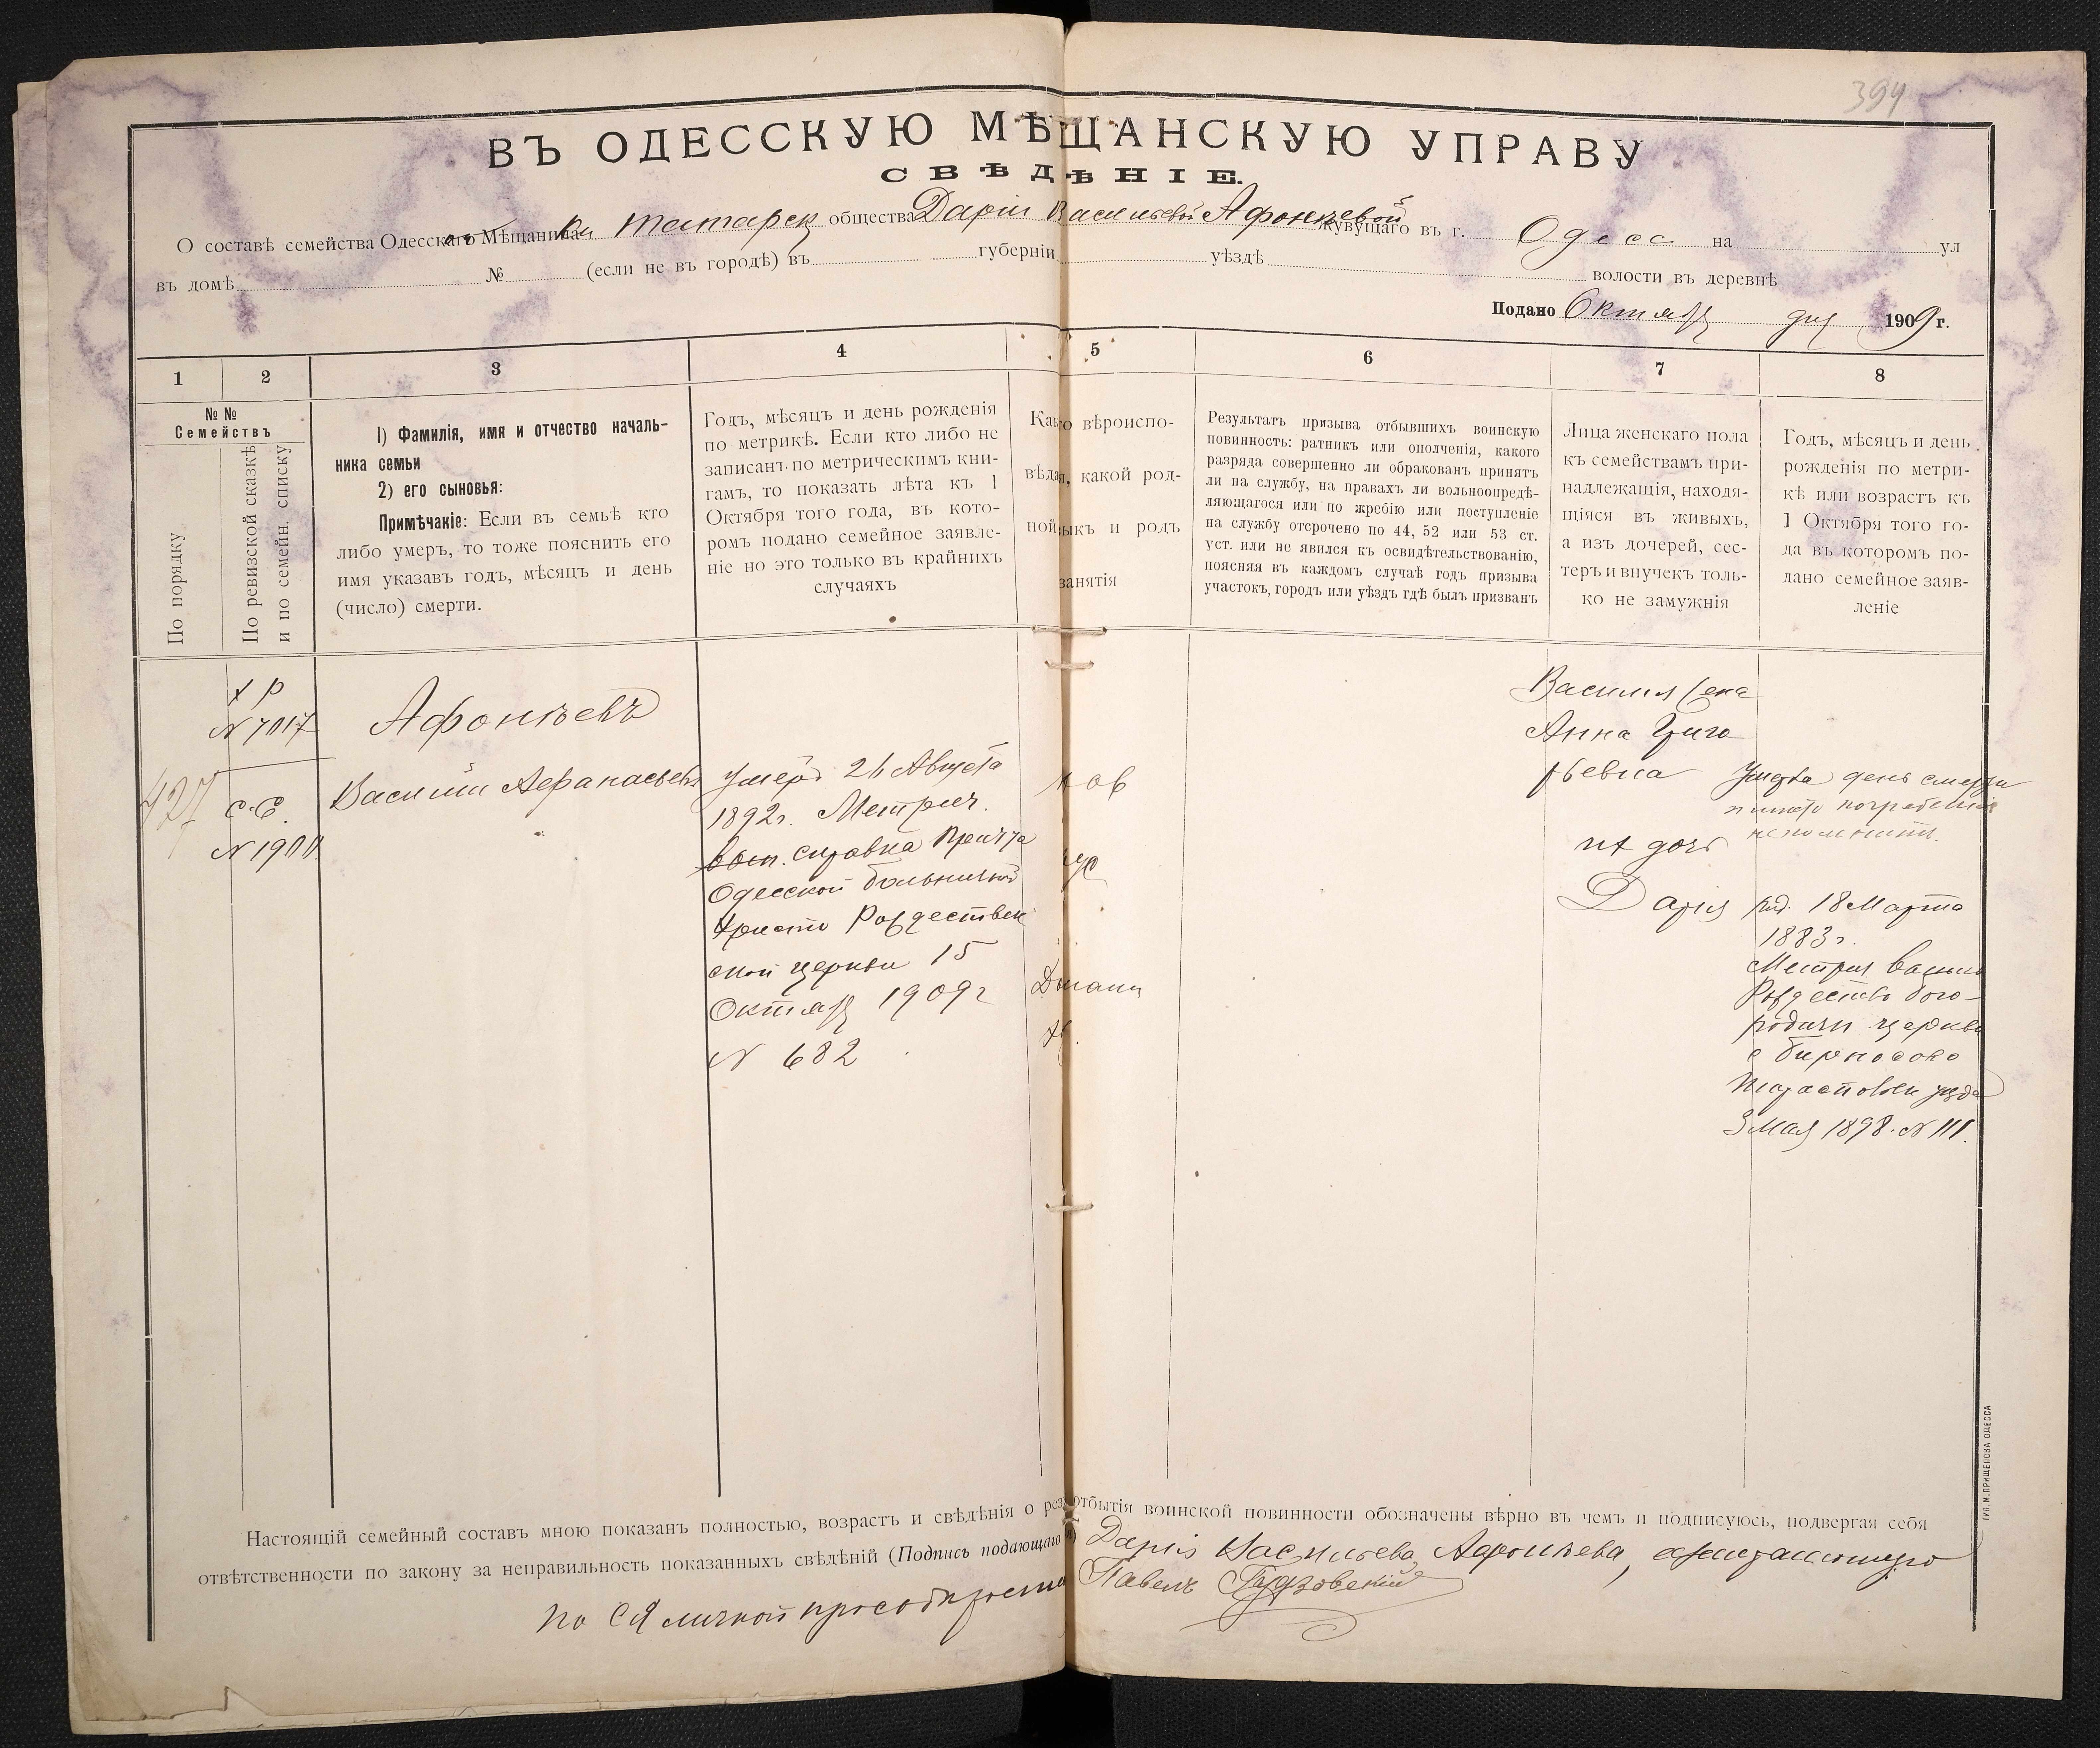 394
ВЪ ОДЕССКУЮ МѢЩАНСКУЮ УПРАВУ
СВѢДѢНІЕ.
О составѣ семейства Одесскаго Мѣщанина общества Даріи Васильевой Афонѣевой живущаго въ г. Одесс на ул
въ домѣ № (если не въ городѣ) въ губерніи уѣздѣ волости въ деревнѣ
Подано Октября дня 1909 г.
1 2 3 4 5 6 7 8
№ №
Семействъ
По порядку
По ревизской сказкѣ
и по семейн. списку
1) Фамилія, имя и отчество началь-
ника семьи
2) его сыновья:
Примѣчаніе: Если въ семьѣ кто
либо умеръ, то тоже пояснить его
имя указавъ годъ, мѣсяцъ и день
(число) смерти.
Годъ, мѣсяцъ и день рожденія
по метрикѣ. Если кто либо не
записанъ по метрическимъ кни-
гамъ, то показать лѣта къ 1
Октября того года, въ кото-
ромъ подано семейное заявле-
ніе но это только въ крайнихъ
случаяхъ
Како вѣроиспо-
вѣдая, какой род-
ной языкъ и родъ
занятія
Результатъ призыва отбывшихъ воинскую
повинность: ратникъ или ополченія, какого
разряда совершенно ли обракованъ принятъ
ли на службу, на правахъ ли вольноопредѣ-
ляющагося или по жребію или поступленіе
на службу отсрочено по 44, 52 или 53 ст.
уст. или не явился къ освидѣтельствованію,
поясняя въ каждомъ случаѣ годъ призыва
участокъ, городъ или уѣздъ гдѣ былъ призванъ
Лица женскаго пола
къ семействамъ при-
надлежащія, находя-
щіяся въ живыхъ,
а изъ дочерей, сес-
теръ и внучекъ толь-
ко не замужнія
Годъ, мѣсяцъ и день
рожденія по метри-
кѣ или возрастъ къ
1 Октября того го-
да въ которомъ по-
дано семейное заяв-
леніе
427
N 7017
С.С.
N 1900
Афонѣевъ
Василій Афанасьевъ
умеръ 26 Августа
1892г. Метрич.
справка Причта
Одесской больничной
Христо Рождествен
ской церкви 15
Октября 1909г
N 682
Василія жена
Анна Григо
рьевна
дочь
Дарія
умерла день смерти
и мѣсто погребенія
не помнитъ.
род. 18 Марта
1883г.
Метрич выпись
Рождество Бого-
родичн церкви
с Бирносово
Тираспольск уѣзда
3 Мая 1898. N 111.
Настоящій семейный составъ мною показанъ полностью, возрастъ и свѣдѣнія о рез. отбытія воинской повинности обозначены вѣрно въ чемъ и подписуюсь, подвергая себя
отвѣтственности по закону за неправильность показанныхъ свѣдѣній (Подпись подающаго) Дарія Васильева Афонѣева,
по ея личной просьбѣ Павелъ Гудзовскій
ТИП. М. ПРИЩЕПОВА ОДЕССА